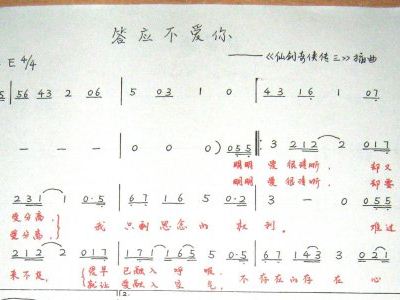 答应不爱你
E 4/4
——《仙剑奇侠传三》插曲
5 | 56 43 2 06 | 5 03 1 0 | 43 16 1 07 |
- - - | 0 0 0) 055 ‖: 3 212 2 017
明明 爱 很清晰, 却又
明明 爱 很清晰, 却要
231 1 0·5 | 67 16 5 0·5
爱分离, 我 只剩 思念 的 权利。 难过
爱分离,
212 2 017
来不及, 爱早 已融入 呼吸, 不存在的存在 心
就让 爱融入 空气,
2.